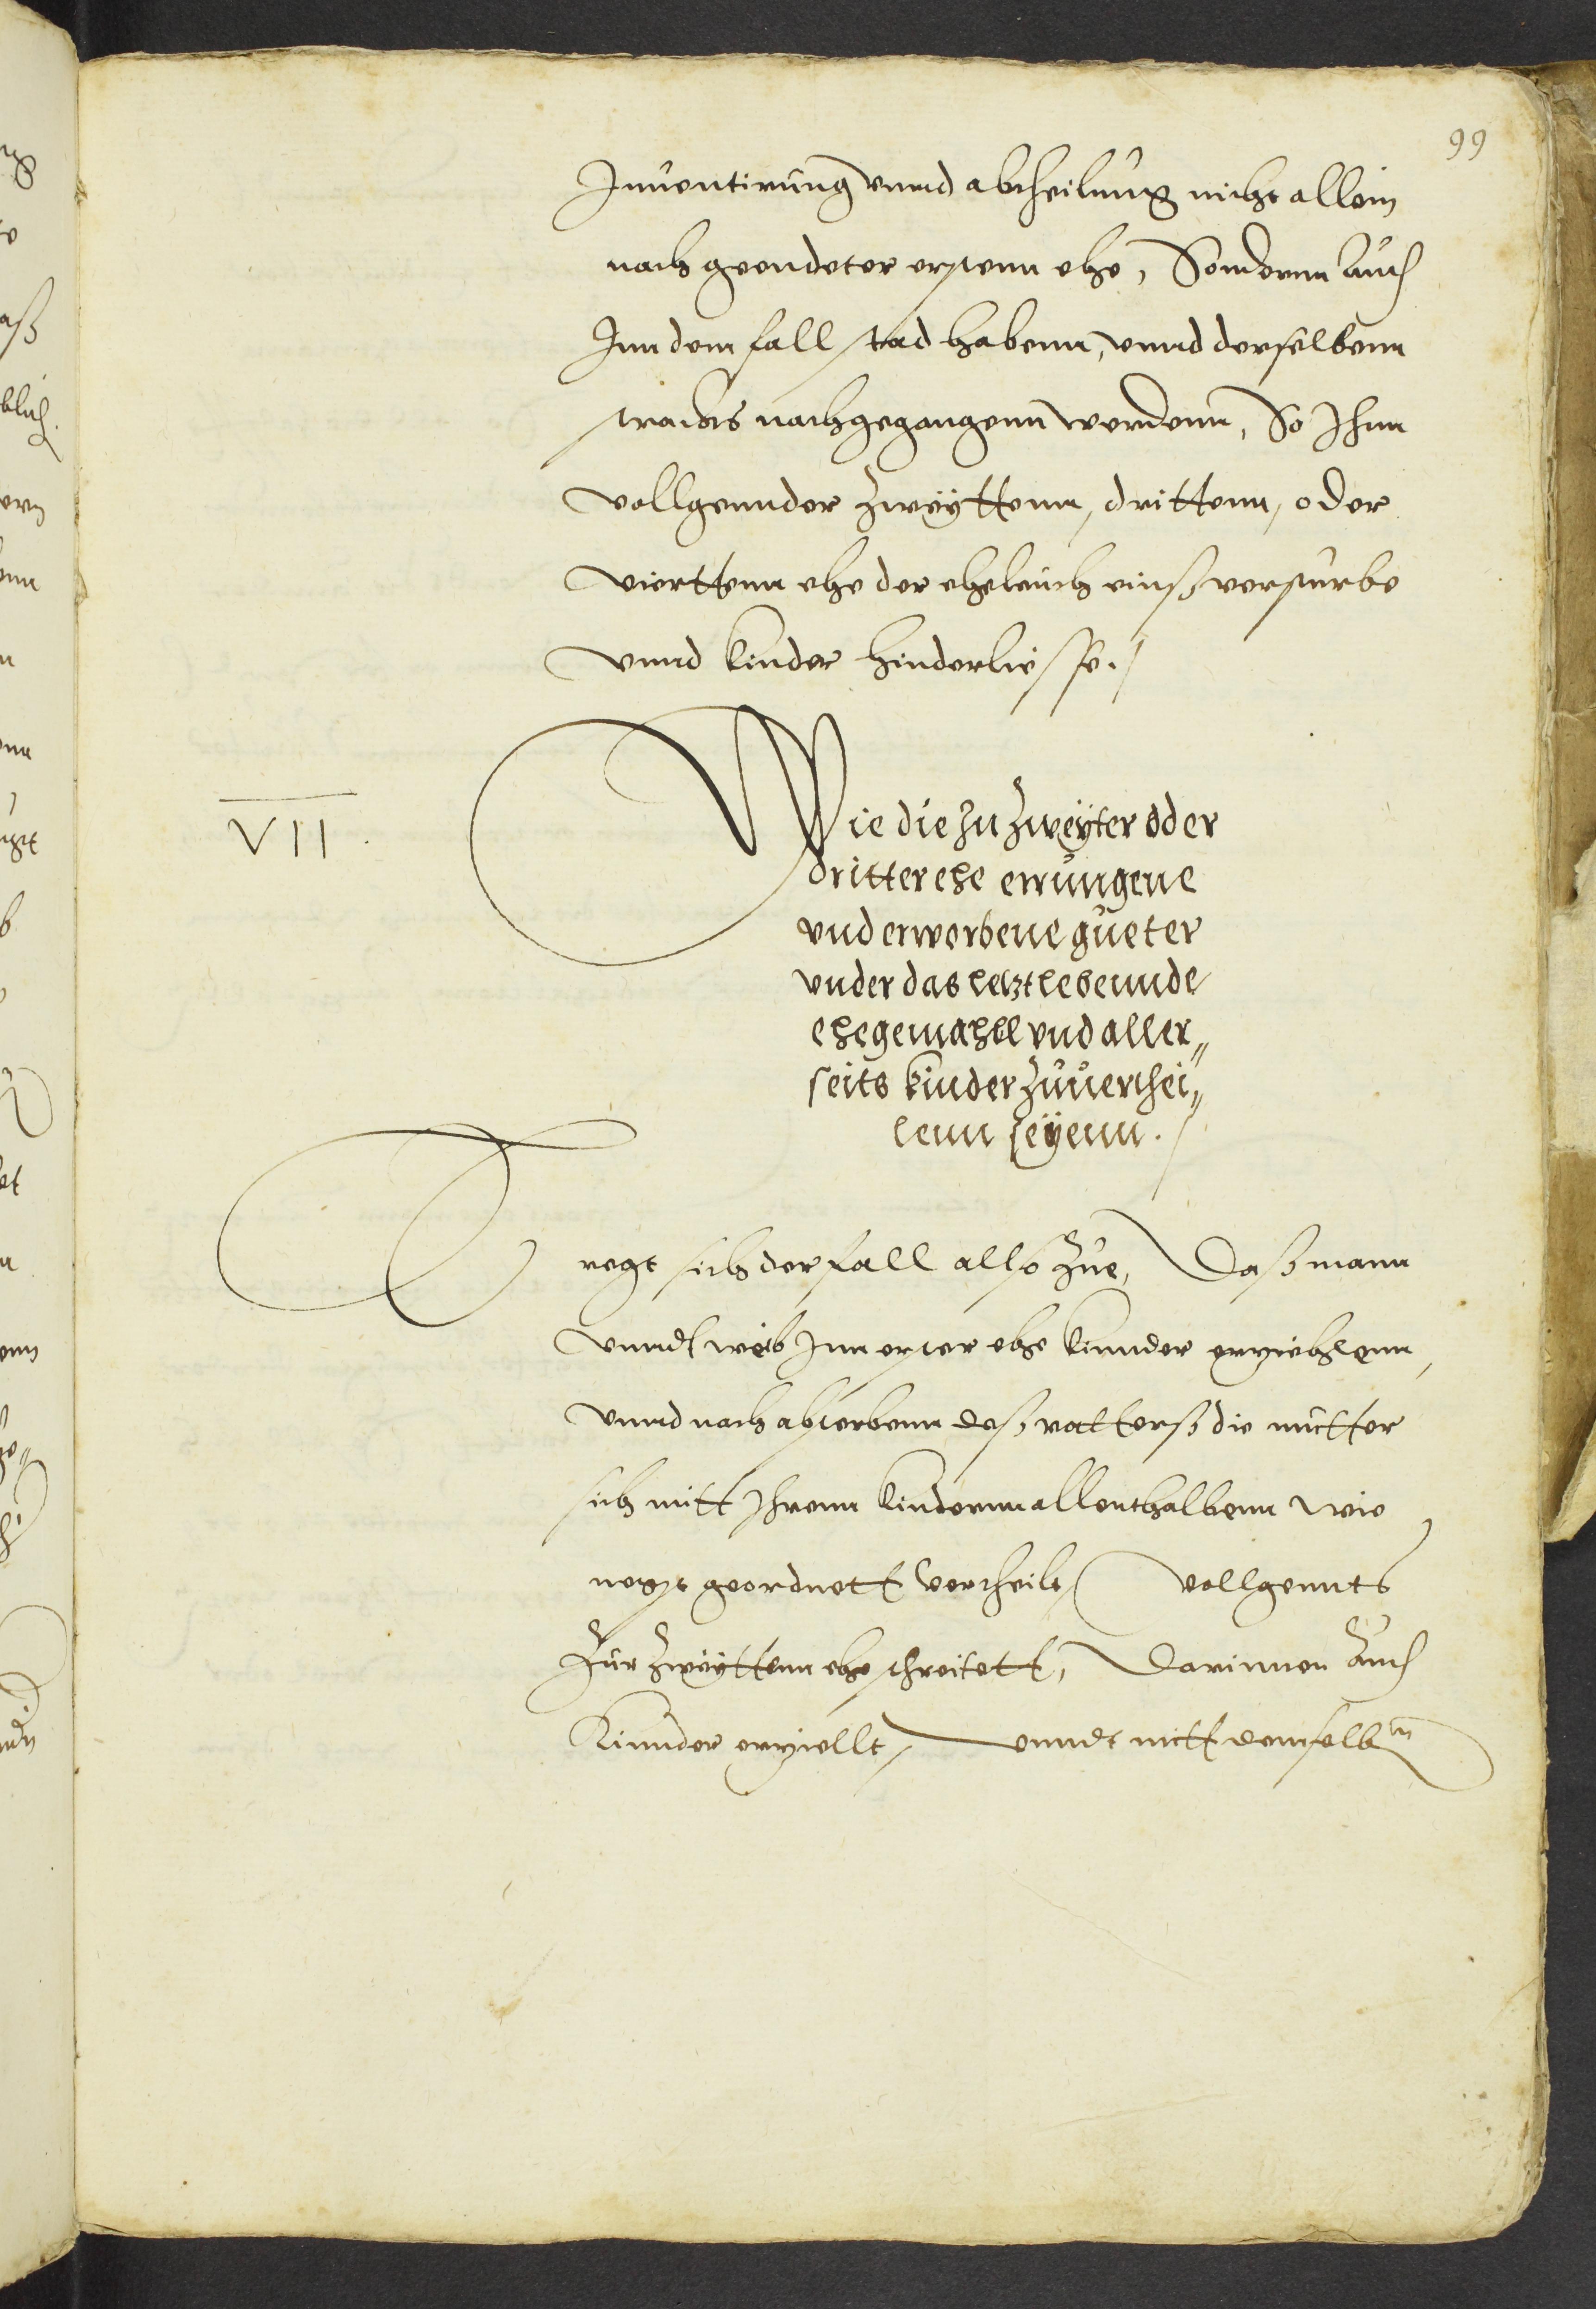 99
Inuentirung vnnd abtheilung nicht allein
nach geendeter erstenn ehe, Sondernn auch
Inn dem fall stad habenn, vnnd derselbenn
stracks nachgegangenn werdenn, So Ihnn
vollgennder zweÿttenn, drittenn, oder
viertenn ehe der eheleuth einß versturbe
vnnd kinder hinderliesse.
VII.
Wie die zu zweÿter oder
dritter ehe errungene
vnd erworbene güeter
vnder das letzt lebennde
ehegemahll vnd aller„
seits kinder zuuerthei„
lenn seÿenn.
Tregt sich der fall allso zue, Daß mann
vnndt weib Inn erster ehe kinnder erziehlenn,
vnnd nach absterbenn deß vatterß die mutter
sich mitt Ihrenn kindernn allenthalbenn wie
negst geordnett vertheilt, vollgennts
zur zweÿttenn ehe schreitett, Darinnen auch
kinnder erziellt, vnndt mitt demselbn